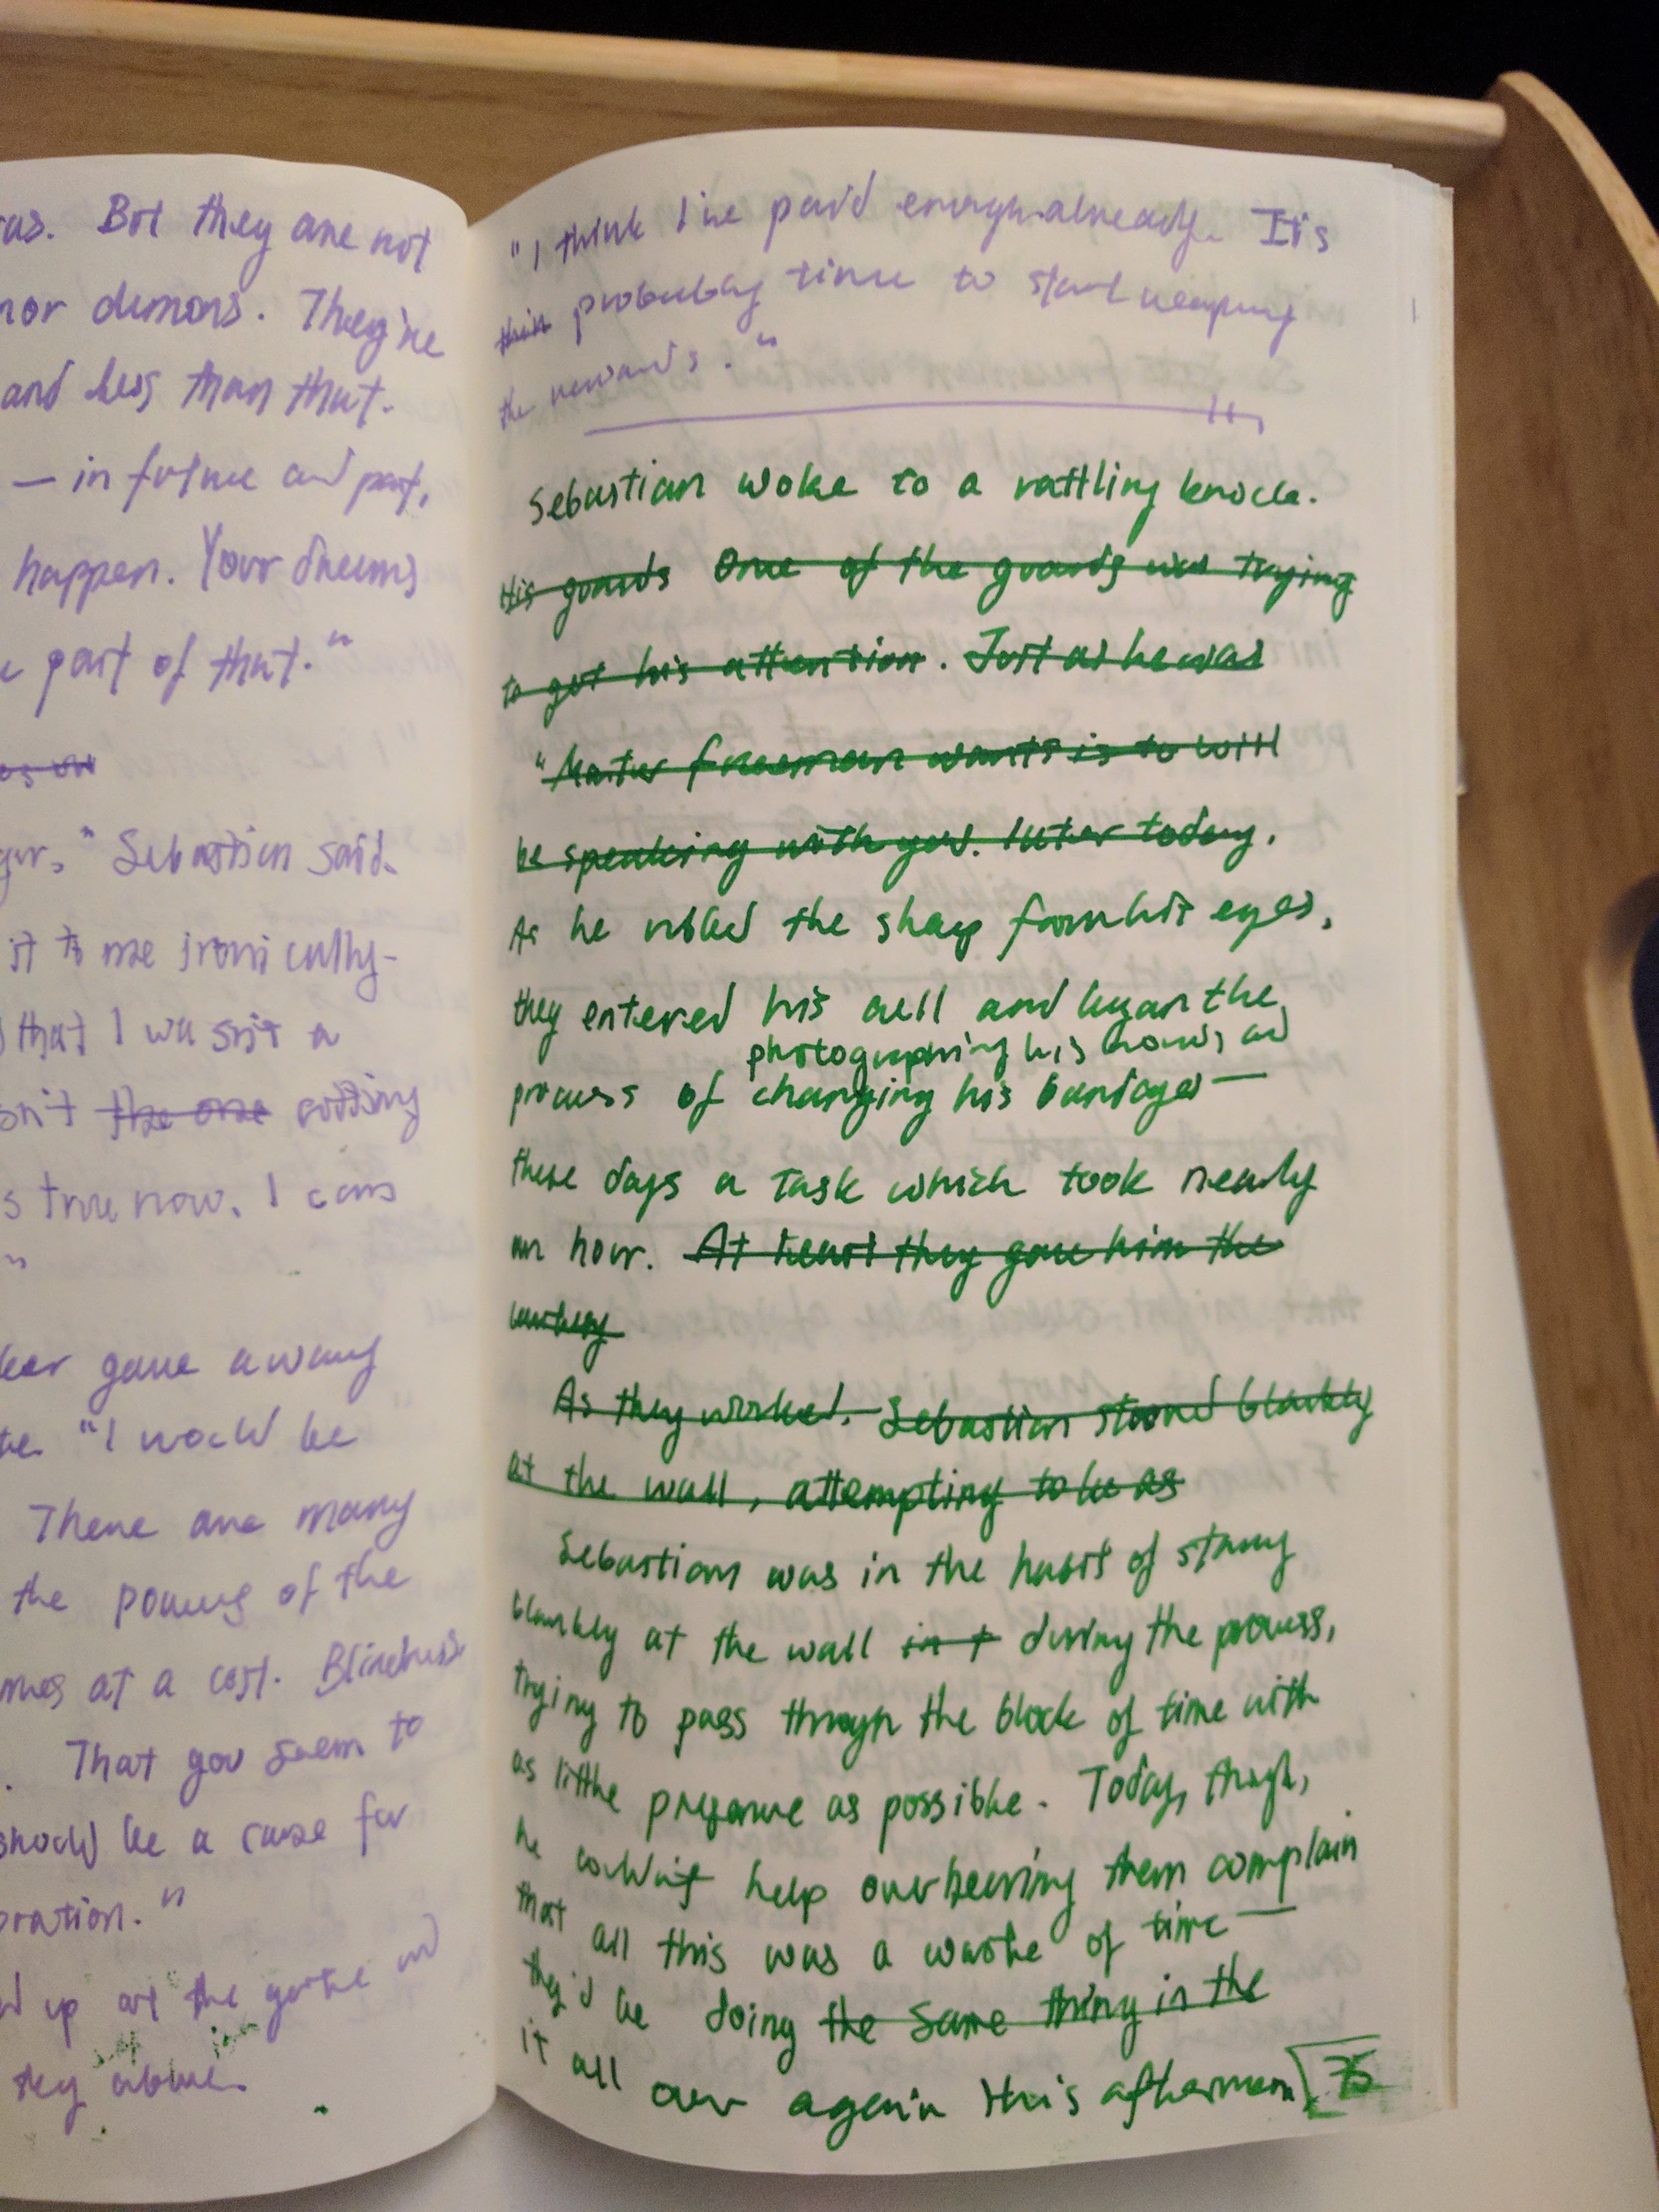 as. But they are not
nor demons. They're
and less than that.
— in future and past,
happen. Your dreams
part of that."
" Sebastian said.
it to me ironically-
that I wasn't a
sn't the one rotting
s true now. I can
"
gave away
"I would be
There are many
the powers of the
mes at a cost. Blindness
. That you seem to
should be a cause for
oration."
up at the gothic
key above.
"I think I've paid enough already. It's
their probably time to start reaping
the rewards."
Sebastian woke to a rattling knock.
His guards One of the guards was trying
to get his attention. Just as he was
"Master Freeman wants is to will
be speaking with you. later today.
As he rubbed the sleep from his eyes,
they entered his cell and began the
photographing his hands and
process of changing his bandages —
these days a task which took nearly
an hour. At heart they gave him the
As they worked. Sebastian stared blankly
at the wall, attempting to be as
Sebastian was in the habit of staring
blankly at the wall in t during the process,
trying to pass through the block of time with
as little presence as possible. Today, though,
he couldn't help overhearing them complain
that all this was a waste of time —
they'd be doing the same thing in the
it all over again this afternoon
75